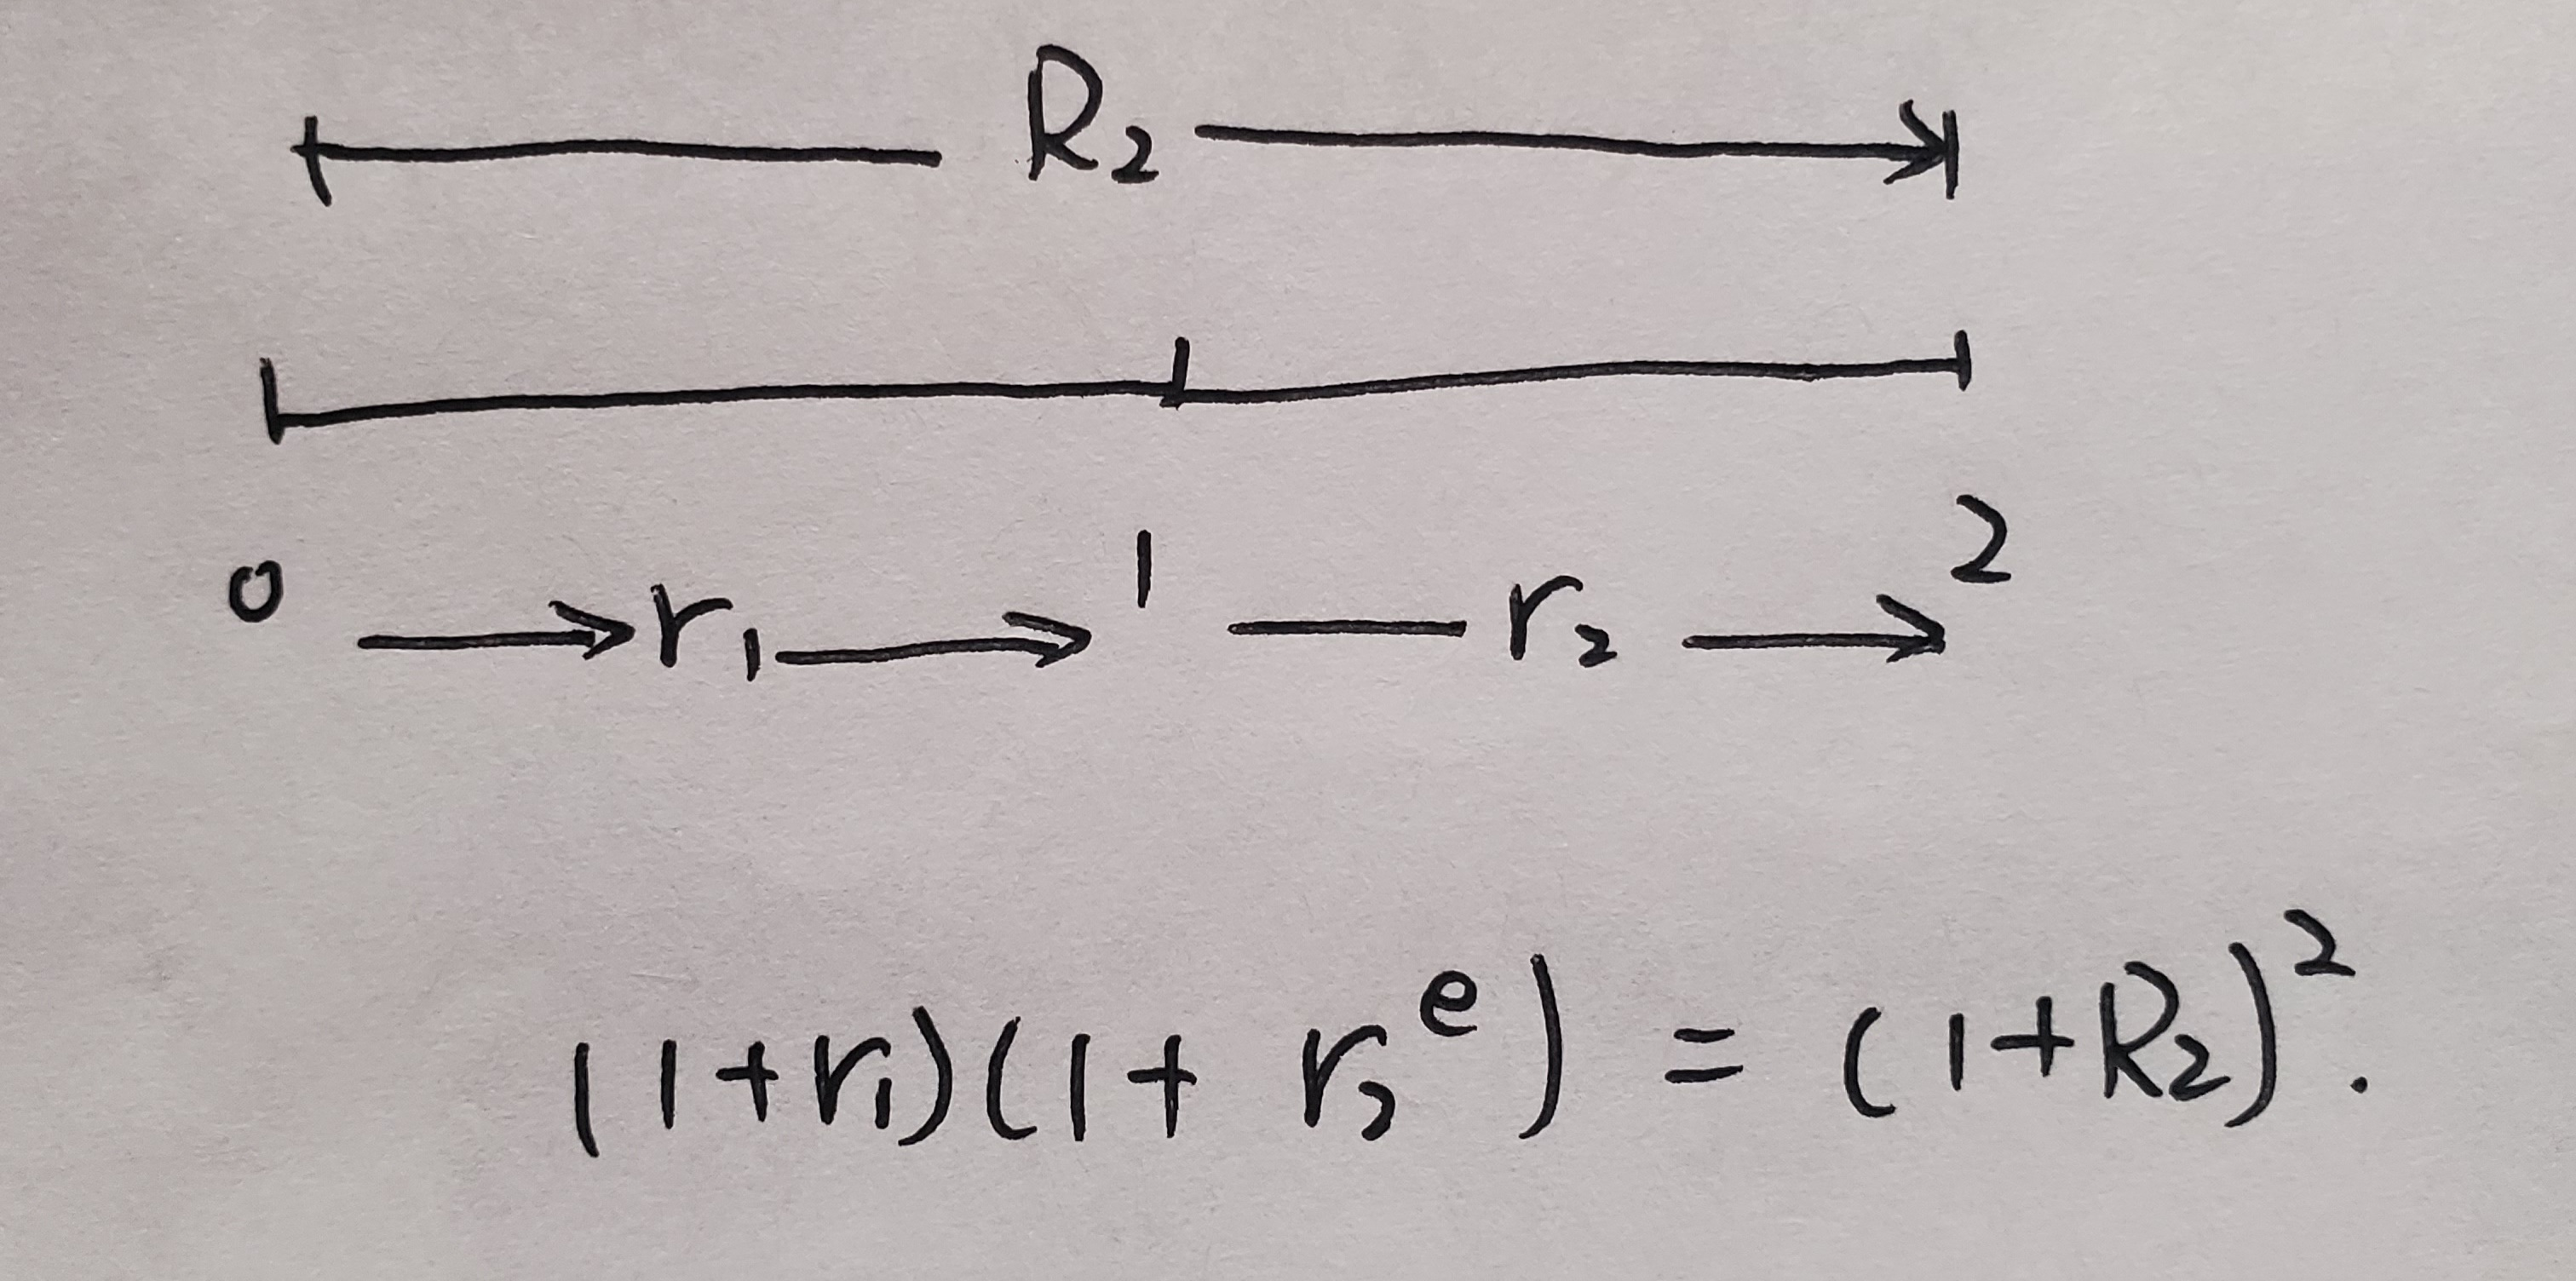 R₂
0 1 2
r₁ r₂
(1+r₁)(1+ r₂ᵉ) = (1+R₂)².